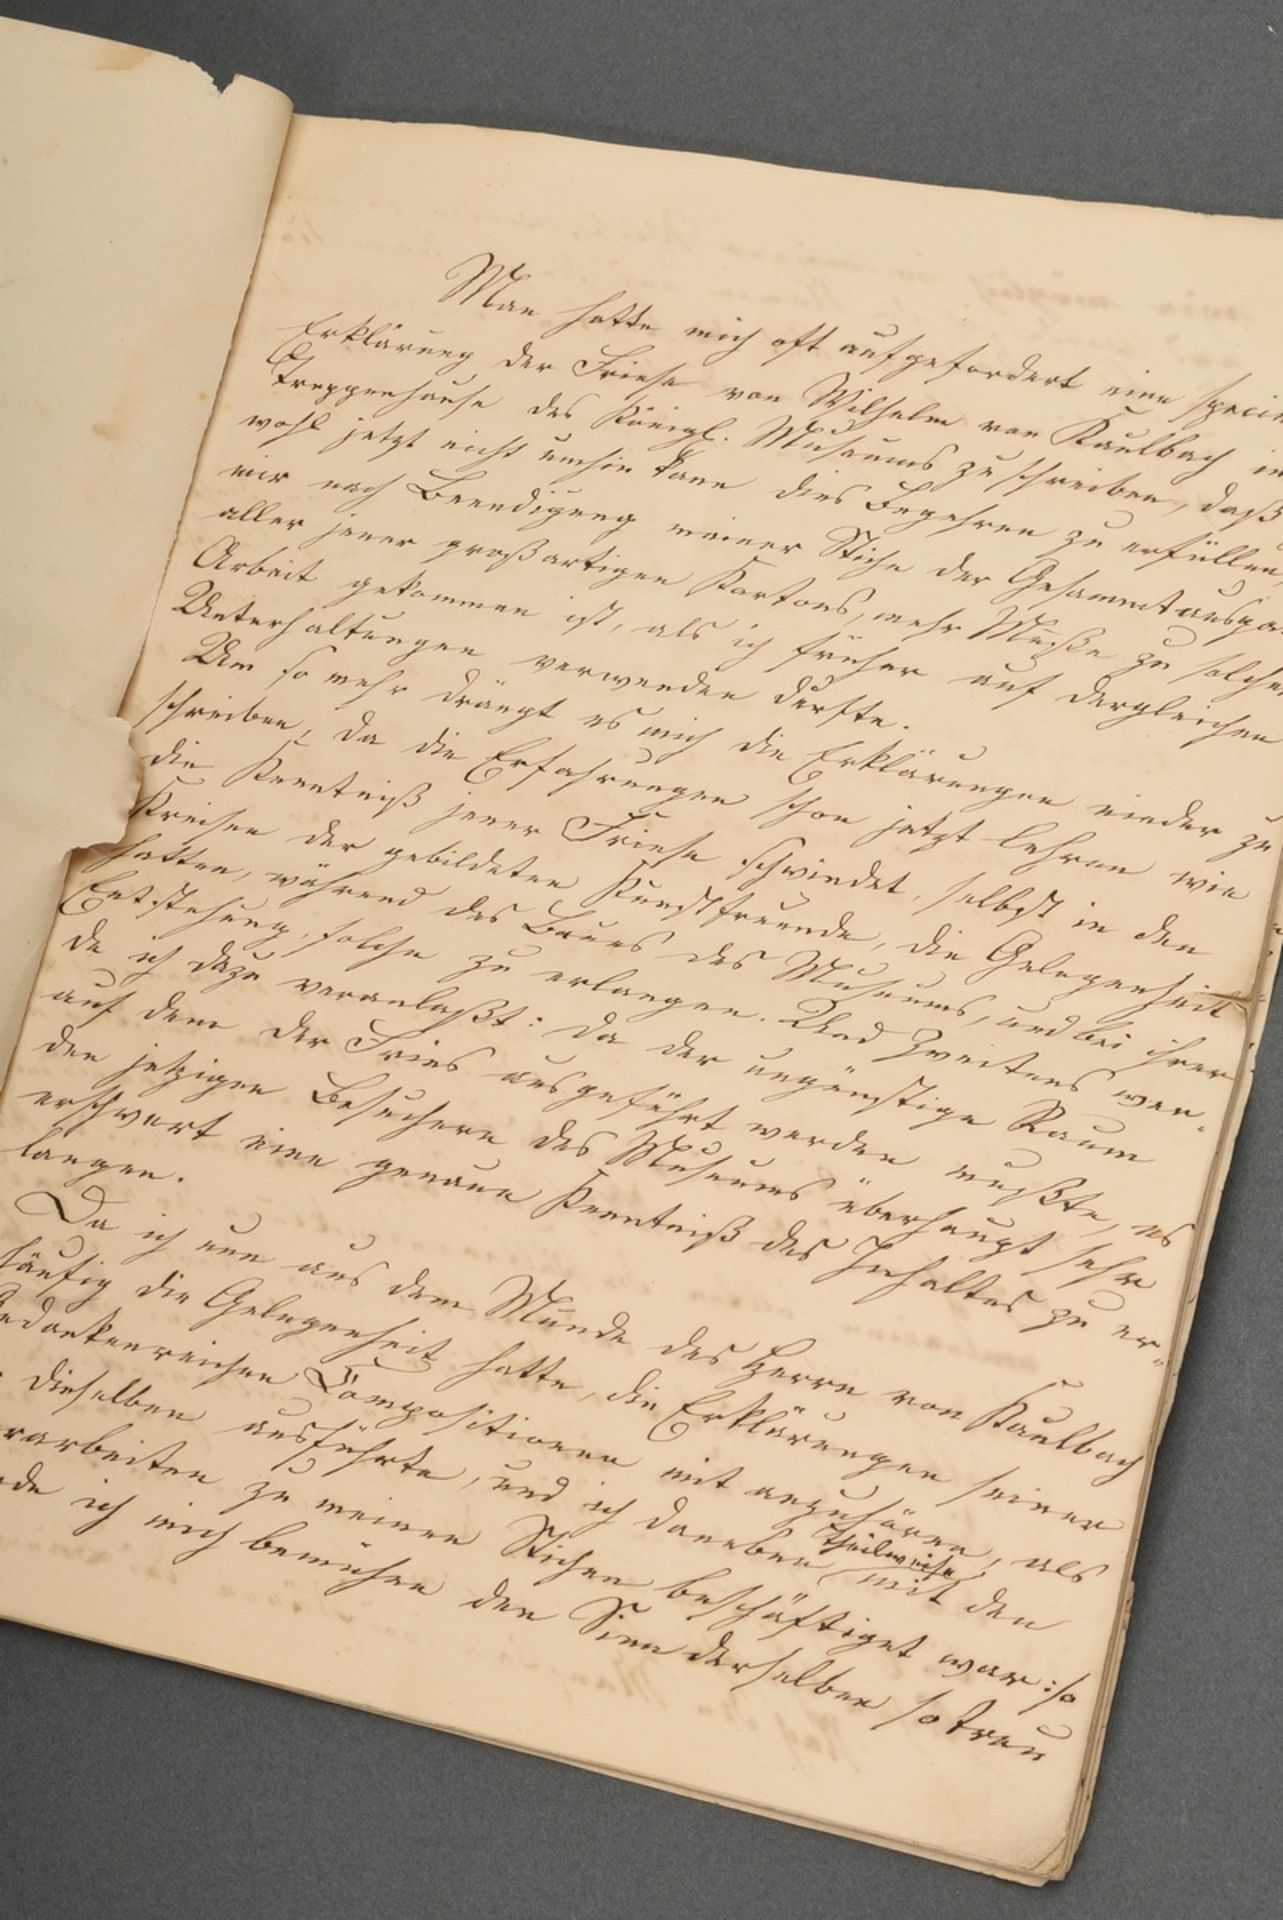 Man hatte mich oft aufgefordert eine speci
Erklärung der Friese von Wilhelm von Kaulbach im
Treppenhause des Königl. Museums zu schreiben, daß
wohl jetzt nicht umhin kann dies Begehren zu erfüllen
mir nach Beendigung meiner Stiche der Gesammtausga
aller jener großartigen Kartons, mehr Muße zu solcher
Arbeit gekommen ist, als ich früher auf dergleichen
Unterhaltungen verwenden durfte.
Um so mehr drängt es mich die Erklärungen nieder zu
schreiben, da die Erfahrungen schon jetzt lehren wie
die Kenntniß jener Friese schwindet, selbst in den
Kreisen der gebildeten Kunstfreunde, die Gelegenheit
hatten, während des Baues des Museums, und bei ihrer
Entstehung, solche zu erlangen. Und Zweitens wer-
de ich dazu veranlaßt: da der ungünstige Raum
auf dem der Fries ausgeführt werden mußte, es
den jetzigen Besuchern des Museums überhaupt sehr
erschwert eine genaue Kenntniß des Inhaltes zu er-
langen.
Da ich nun aus dem Munde des Herrn von Kaulbach
häufig die Gelegenheit hatte, die Erklärungen seiner
edankenreichen Compositionen mit anzuhören, als
dieselben ausführte, und ich daneben theilweise mit den
rarbeiten zu meinen Stichen beschäftiget war: so
de ich mich bemühen den Sinn derselben so treu